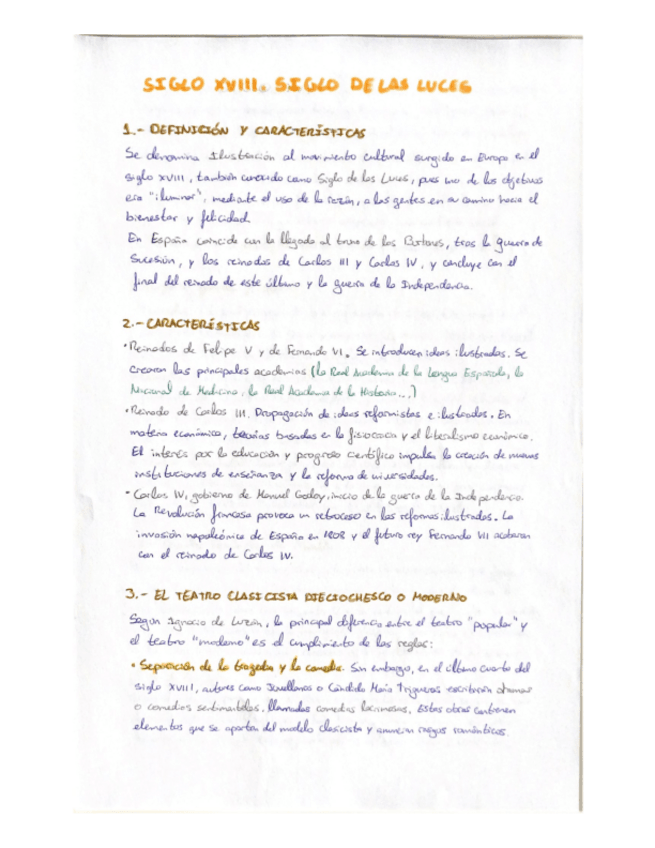 SIGLO XVIII. SIGLO DE LAS LUCES
1.- DEFINICIÓN Y CARACTERÍSTICAS
Se denomina Ilustración al movimiento cultural surgido en Europa en el
siglo XVIII, también conocido como Siglo de las Luces, pues uno de los objetivos
era "iluminar", mediante el uso de la razón, a las gentes en su camino hacia el
bienestar y felicidad.
En España coincide con la llegada al trono de los Borbones, tras la Guerra de
Sucesión, y los reinados de Carlos III y Carlos IV, y concluye con el
final del reinado de este último y la guerra de la Independencia.
2.- CARACTERÍSTICAS
· Reinados de Felipe V y de Fernando VI. Se introducen ideas ilustradas. Se
crearon las principales academias (la Real Academia de la Lengua Española, la
Nacional de Medicina, la Real Academia de la Historia...)
· Reinado de Carlos III. Propagación de ideas reformistas e ilustradas. En
materia económica, teorías basadas en la fisiocracia y el liberalismo económico.
El interés por la educación y progreso científico impulsa la creación de nuevas
instituciones de enseñanza y la reforma de universidades.
· Carlos IV, gobierno de Manuel Godoy, inicio de la guerra de la Independencia.
La Revolución francesa provoca un retroceso en las reformas ilustradas. La
invasión napoleónica de España en 1808 y el futuro rey Fernando VII acabaran
con el reinado de Carlos IV.
3.- EL TEATRO CLASICISTA DIECIOCHESCO O MODERNO
Según Ignacio de Luzán, la principal diferencia entre el teatro "popular" y
el teatro "moderno" es el cumplimiento de las reglas:
· Separación de la tragedia y la comedia. Sin embargo, en el último cuarto del
siglo XVIII, autores como Jovellanos o Cándido María Trigueros escribirán dramas
o comedias sentimentales, llamadas comedias lacrimosas. Estas obras contienen
elementos que se apartan del modelo clasicista y anuncian rasgos románticos.